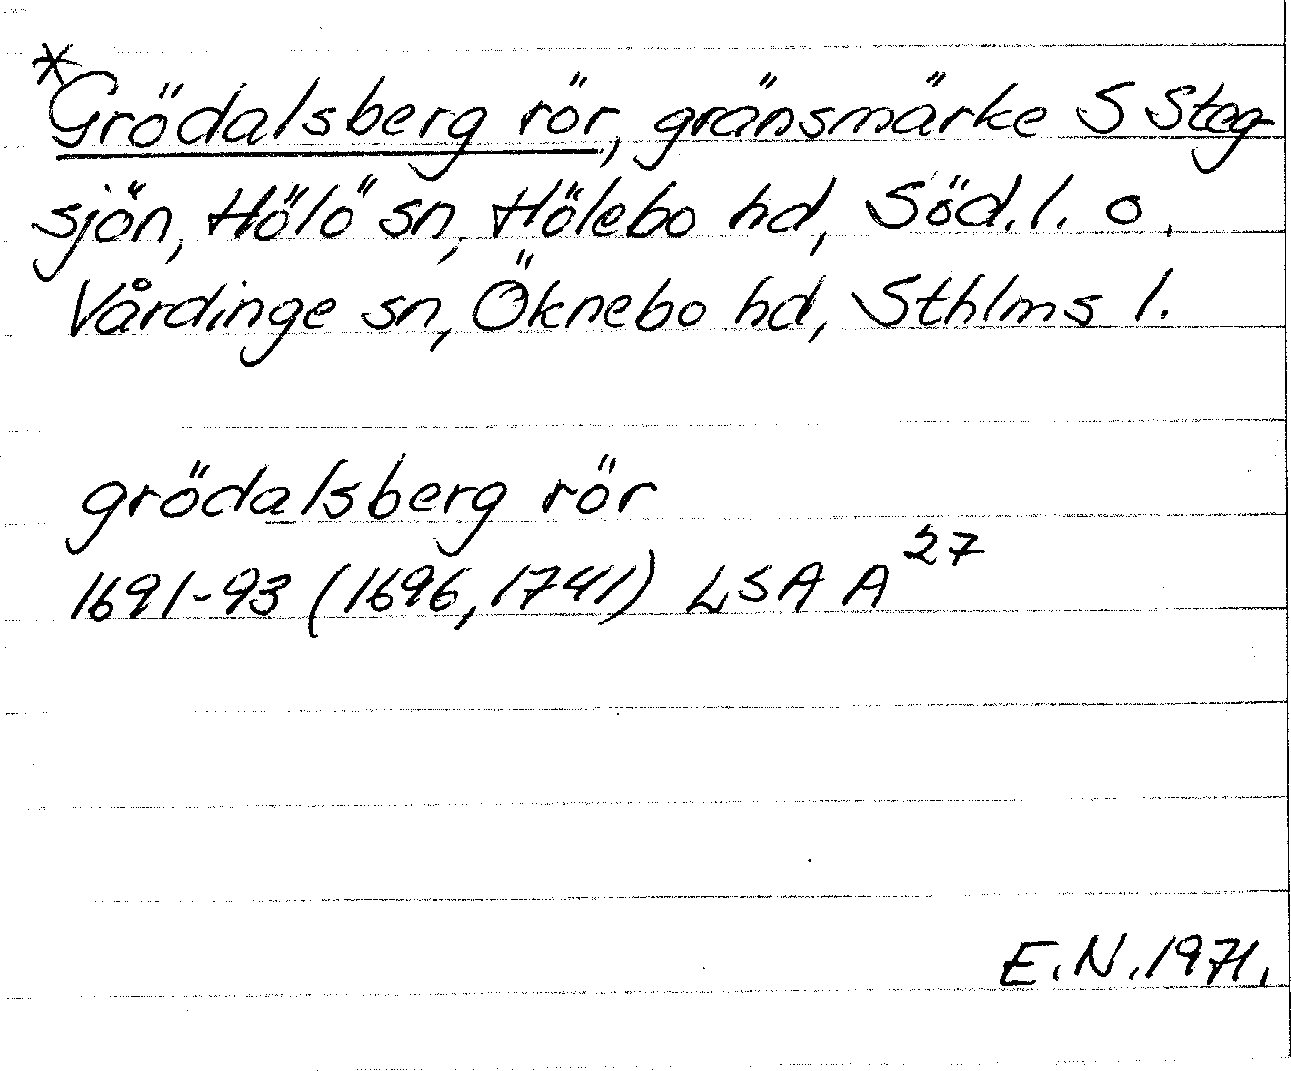 *Grödalsberg rör, gränsmärke S Steg-
sjön, Hölö sn, Hölebo hd, Söd. l. o.
Vårdinge sn, Öknebo hd, Sthlms l.
grödalsberg rör
1691-93 (1696, 1741) LSA A²⁷
E.N. 1971.